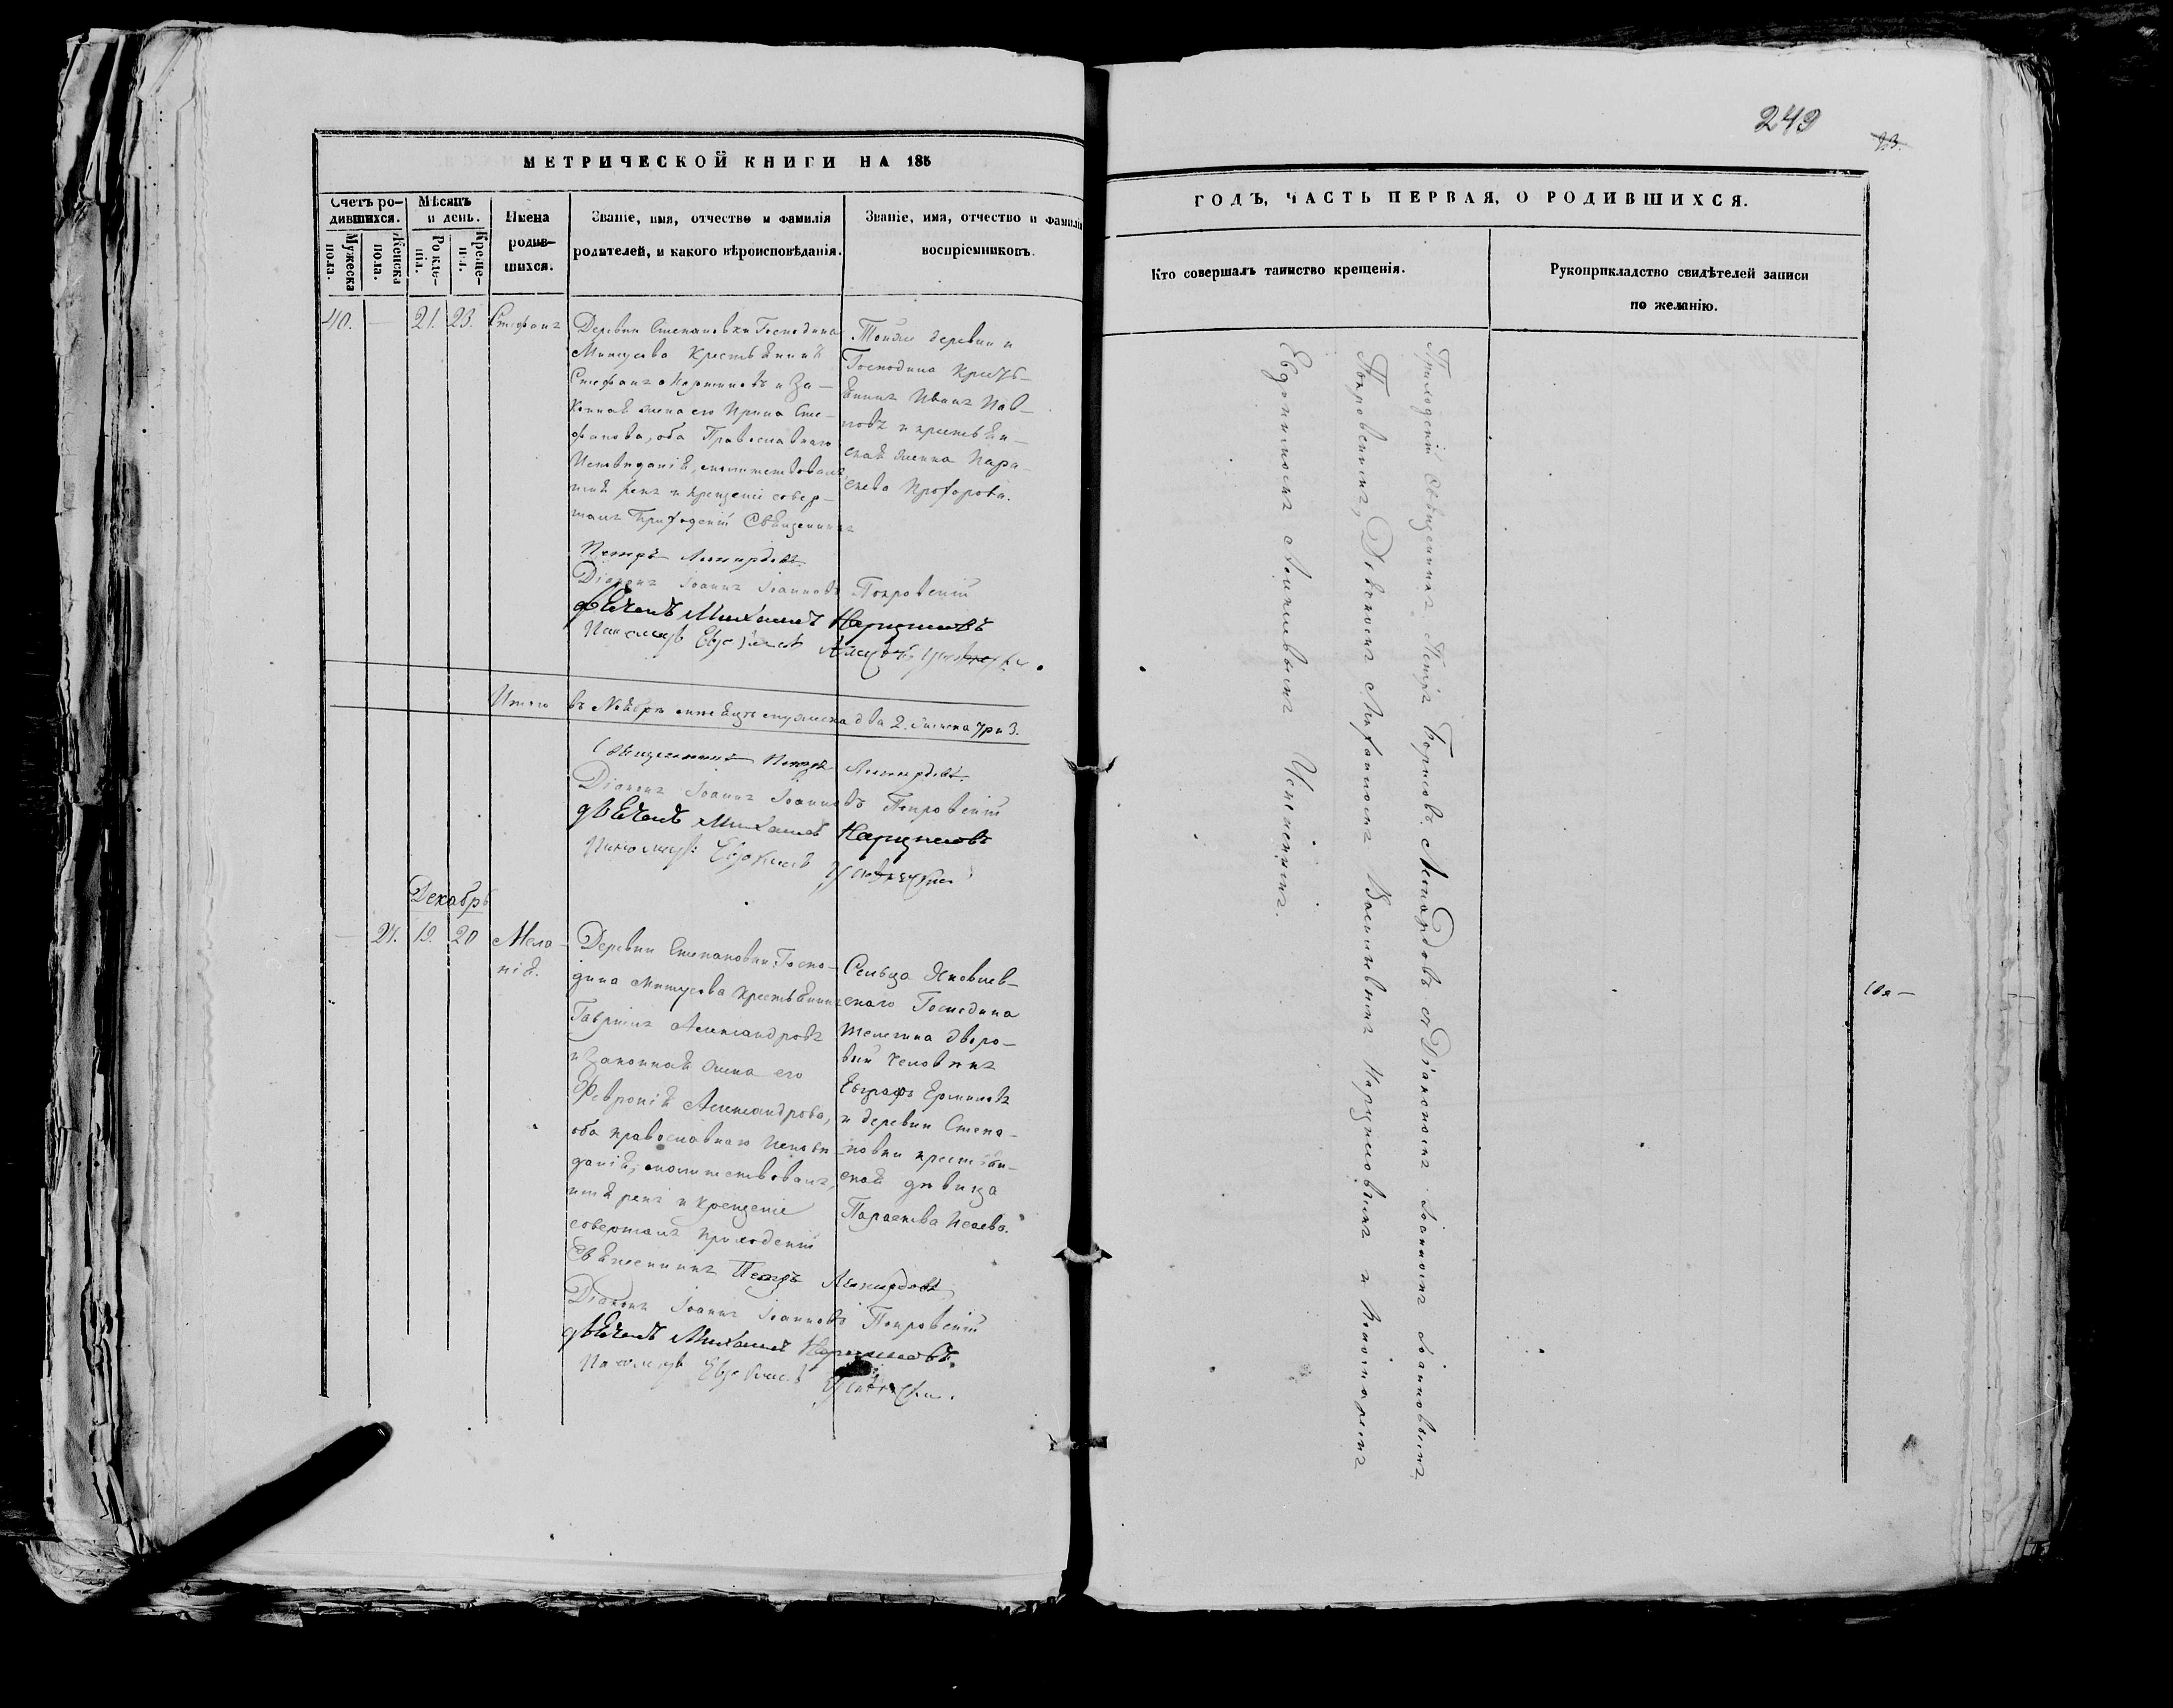 МЕТРИЧЕСКОЙ КНИГИ НА 185
Счетъ ро-
дившихся.
Мужеска пола.
Женска пола.
Мѣсяцъ
и день.
Рожде-
нія.
Креще-
нія.
Имена
родив-
шихся.
Званіе, имя, отчество и фамилія
родителей, и какого вѣроисповѣданія.
Званіе, имя, отчество и фамилія
воспріемниковъ.
40. — 21. 23. Стефанъ
Деревни Степановки Господина
Митусова Крестьянинъ
Стефанъ Мартиновъ и За-
конная жена его Ирина Сте-
фанова, оба Православнаго
Исповѣданія, молитствовалъ
имя рекъ и крещеніе совер-
шалъ Приходскій Священникъ
Петръ Леонардовъ
Діаконъ Іоаннъ Іоанновъ Покровскій
дьячокъ Михаилъ Нарциссовъ
Пономарь Евдокимъ
Тойже деревни и
Господина Кресть-
янинъ Иванъ Пав-
ловъ и крестьян-
ская женка Пара-
скева Прохорова.
Итого въ Ноябрѣ мѣсяцѣ мужеска два 2. женска три 3.
Священникъ Петръ Леонардовъ
Діаконъ Іоаннъ Іоанновъ Покровскій
дьячокъ Михаилъ Нарциссовъ
Пономарь Евдокимъ Успенскій
Декабрь
— 24. 19. 20 Мела-
нія.
Деревни Степановки Госпо-
дина Митусова Крестьянинъ
Гавріилъ Александровъ
и Законная жена его
Февронія Александрова,
оба православнаго Исповѣ-
данія, молитствовалъ,
имя рекъ и крещеніе
совершалъ Приходскій
Священникъ Петръ Леонардовъ
Діаконъ Іоаннъ Іоанновъ Покровскій
дьячокъ Михаилъ Нарциссовъ
Пономарь Евдокимъ Успенскій.
Сельца Яковлев-
скаго Господина
дворо-
вый человѣкъ
Евграфъ
и деревни Степа-
новки крестьян-
ская дѣвица
Параскева Исаева.
249
23.
ГОДЪ, ЧАСТЬ ПЕРВАЯ, О РОДИВШИХСЯ.
Кто совершалъ таинство крещенія.
Рукоприкладство свидѣтелей записи
по желанію.
Приходскій Священникъ Петръ Борисовъ Леонардовъ съ Діакономъ Іоанномъ Іоанновымъ
Покровскимъ, Дьячкомъ Михаиломъ Васильевымъ Нарциссовымъ и Пономаремъ
Евдокимомъ Успенскимъ.